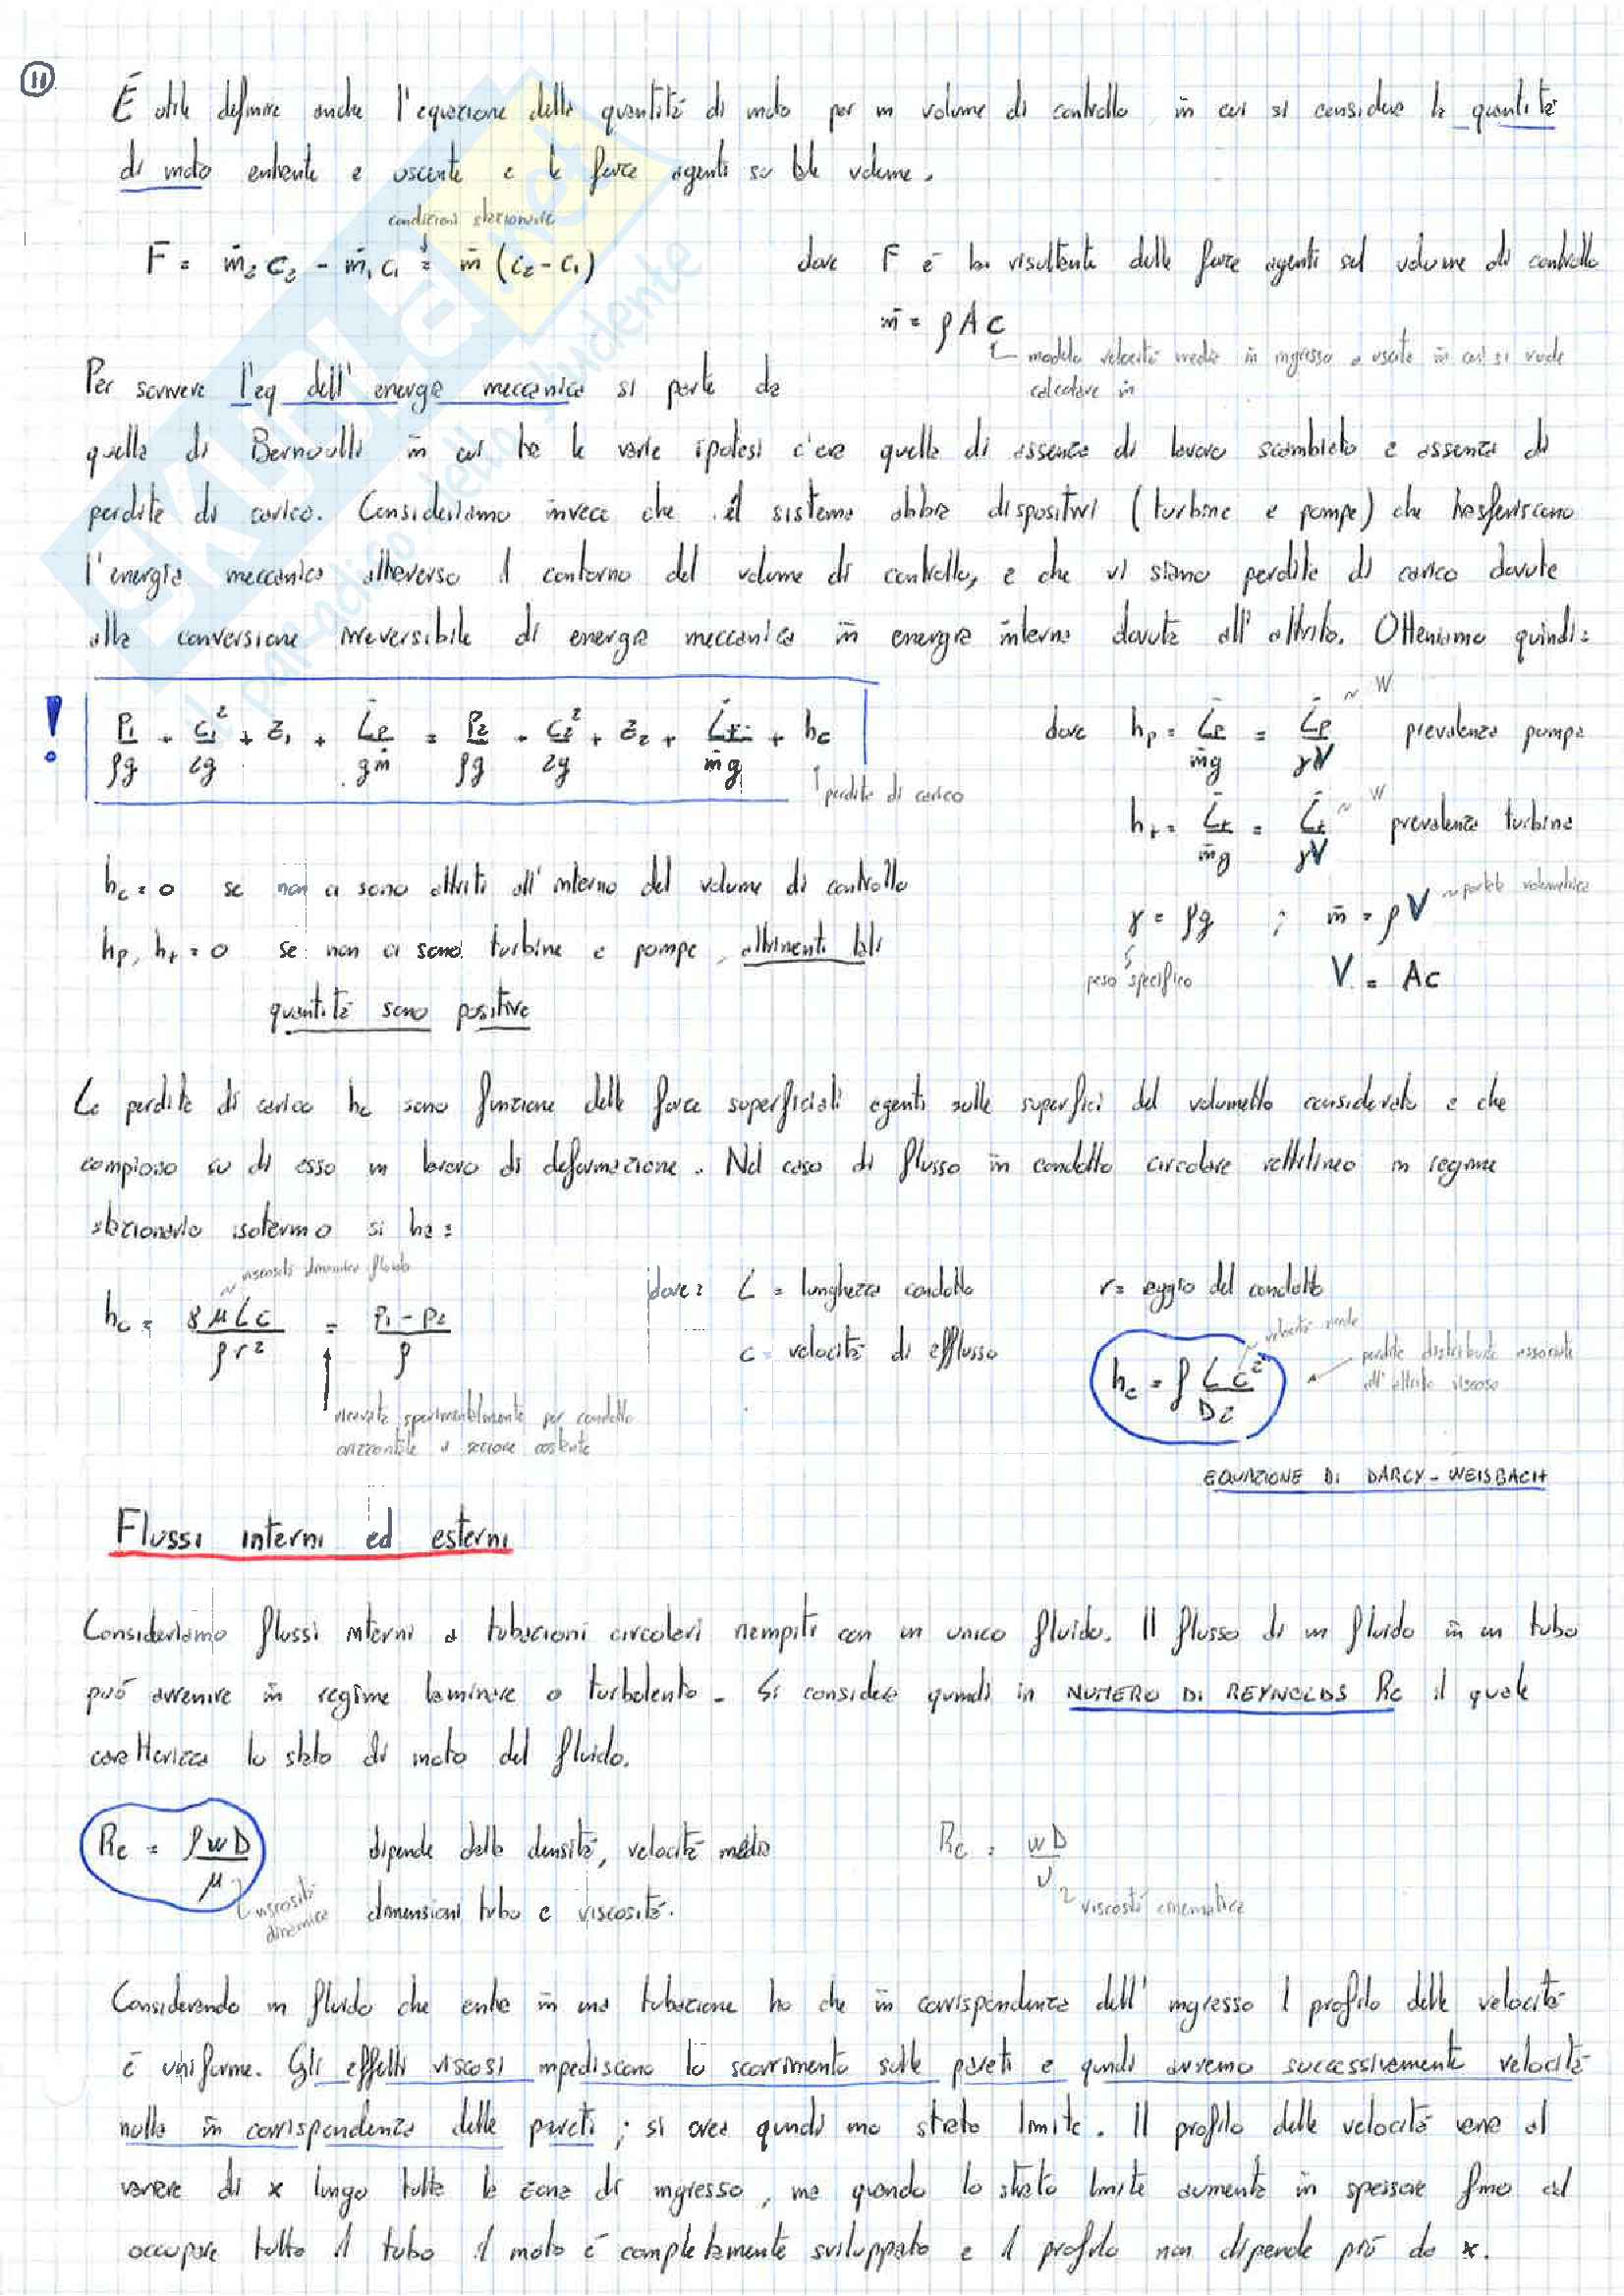 11
É utile definire anche l'equazione della quantità di moto per un volume di controllo in cui si considera la quantità
di moto entrante e uscente e le forze agenti su tale volume.
condizioni stazionarie
F = ṁ₂ c₂ - ṁ₁ c₁ = ṁ (c₂ - c₁)
dove F è la risultante delle forze agenti sul volume di controllo
ṁ = ρ A c
modulo velocità media in ingresso o uscita in cui si vuole
calcolare ṁ
Per scrivere l'eq dell'energia meccanica si parte da
quella di Bernoulli in cui tra le varie ipotesi c'era quella di assenza di lavoro scambiato e assenza di
perdite di carico. Consideriamo invece che il sistema abbia dispositivi (turbine e pompe) che trasferiscono
l'energia meccanica attraverso il contorno del volume di controllo, e che vi siano perdite di carico dovute
alla conversione irreversibile di energia meccanica in energia interna dovuta all'attrito. Otteniamo quindi:
! p₁/ρg + c₁²/2g + z₁ + L̇p/gṁ = p₂/ρg + c₂²/2g + z₂ + L̇t/ṁg + hc
perdite di carico
dove hp = L̇p/ṁg = L̇p/γV ~ W prevalenza pompa
ht = L̇t/ṁg = L̇t/γV ~ W prevalenza turbina
hc = 0 se non ci sono attriti all'interno del volume di controllo
γ = ρg ; ṁ = ρV ~ portata volumetrica
peso specifico
V = Ac
hp, ht = 0 se non ci sono turbine e pompe, altrimenti tali
quantità sono positive
Le perdite di carico hc sono funzione delle forze superficiali agenti sulle superfici del volumetto considerato e che
compiono su di esso un lavoro di deformazione. Nel caso di flusso in condotto circolare rettilineo in regime
stazionario isotermo si ha:
viscosità dinamica fluido
hc = 8μLc/ρr² = p₁-p₂/ρ
ricavata sperimentalmente per condotto
orizzontale a sezione costante
dove: L = lunghezza condotto
r = raggio del condotto
c = velocità di efflusso
hc = f L c²/D 2
velocità media
perdite distribuite associate
all'attrito viscoso
EQUAZIONE DI DARCY-WEISBACH
Flussi interni ed esterni
Consideriamo flussi interni a tubazioni circolari riempiti con un unico fluido. Il flusso di un fluido in un tubo
può avvenire in regime laminare o turbolento. Si considera quindi un NUMERO DI REYNOLDS Re il quale
caratterizza lo stato di moto del fluido.
Re = ρwD/μ
viscosità
dinamica
dipende dalla densità, velocità media
dimensioni tubo e viscosità.
Re = wD/ν
viscosità cinematica
Considerando un fluido che entra in una tubazione ho che in corrispondenza dell'ingresso il profilo delle velocità
è uniforme. Gli effetti viscosi impediscono lo scorrimento sulle pareti e quindi avremo successivamente velocità
nulla in corrispondenza delle pareti; si crea quindi uno strato limite. Il profilo delle velocità varia al
variare di x lungo tutta la zona di ingresso, ma quando lo strato limite aumenta in spessore fino ad
occupare tutto il tubo il moto è completamente sviluppato e il profilo non dipende più da x.
SKUOLA.net
il paradiso dello studente